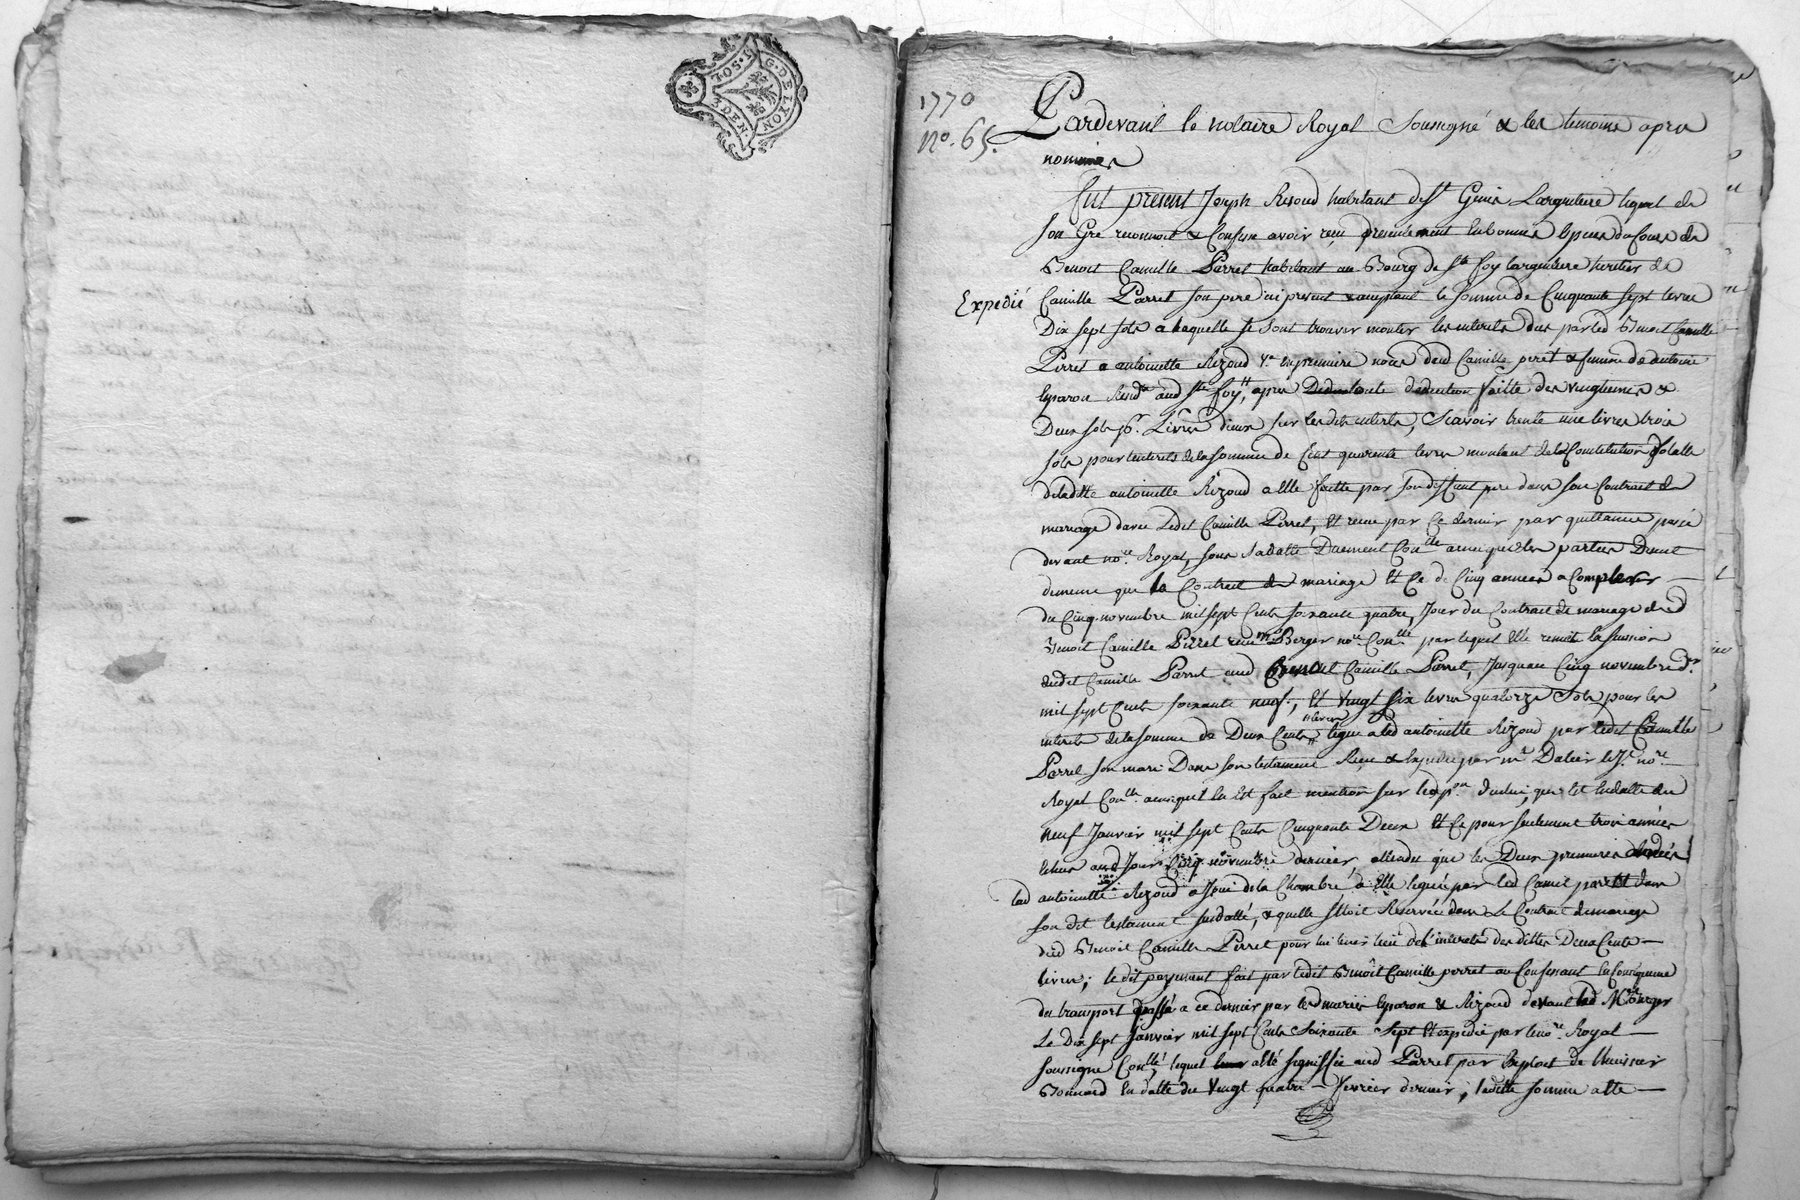 G. DE LYON
1 OS. 5
3 DEN.
1770
No. 65.
Pardevant le notaire Royal Soussigné & les temoins apres
nommés
fut present Joseph Rizoud habitant de St Genis Largentiere lequel de
son Gré reconnoit & Confesse avoir reçu presentement En bonnes Especes du Cours de
Benoit Camille Perret habitant au Bourg de Ste foy largentiere heritier de
Expedié
Camille Parret son pere ici present & acceptant la somme de Cinquante sept livres
Dix sept sols a laquelle se sont trouvés monter les interets dus par led Benoit Camille
Perret a antoinette Rizoud Ve. en premiere noces dud Camille peret & femme de antoine
Esparon Residt aud Ste foy, apres deduction faitte des vingtiemes &
Deux sols pr. Livres d'iceux sur les dits interets, Scavoir trente une livres trois
sols pour les interets de la somme de Cent quarente livres montant de la Constitution dotalle
de laditte antoinette Rizoud a Elle faitte par son deffunt pere dans son Contract de
mariage davec Ledit Camille Perret, Et recue par Ce dernier par quittance passé
devant nore. Royal, sous sa datte Duement Conlle ainsi que les parties Dument
dememe que le Contract de mariage Et Ce de Cinq années a Compter
du Cinq novembre mil sept Cents soixante quatre, Jour du Contract de mariage dud
Benoit Camille Pirret recu me Berger nore Conlle par lequel Elle remit la sucession
dudit Camille Parret aud Benoit Camille Parret, Jusquau Cinq novembre der.
mil sept Cents soixante neuf, Et vingt six livres quatorze Sols pour les
interets de la somme de Deux Cents livres legué a lad antoinette Rizoud par ledit Camille
Perret son mari Dans son testament Reçu & Expedié par me Dalier le Je. nore
Royal Conlle. ainsi quil En Est fait mention sur led on d'icelui, que Est En datte du
neuf Janvier mil sept Cents Cinquante Deux Et Ce pour seulement trois années
Echues aud Jour Cinq novembre dernier, attendu que les Deux premieres années
lad antoinette Rizoud a Joui de la Chambre a Elle leguée par led Camil parret dans
son dit testament susdatté, & quelle s'Etoit Reservée dans Le Contract de mariage
dud Benoit Camille Perret pour lui tenir lieu de l'interet des dittes Deux Cents
livres; le dit payement fait par ledit Benoit Camille perret au Confessant En Consequence
du transport passé a ce dernier par les maries Esparon & Rizoud devant led Me Berger
Le Dix sept Janvier mil sept Cents Soixante Sept Et expedié par le nore Royal
soussigné Conlle, lequel a Eté signiffié aud Parret par Exploit de l'huissier
Bonnard En datte du vingt quatre fevrier dernier, laditte somme a Eté